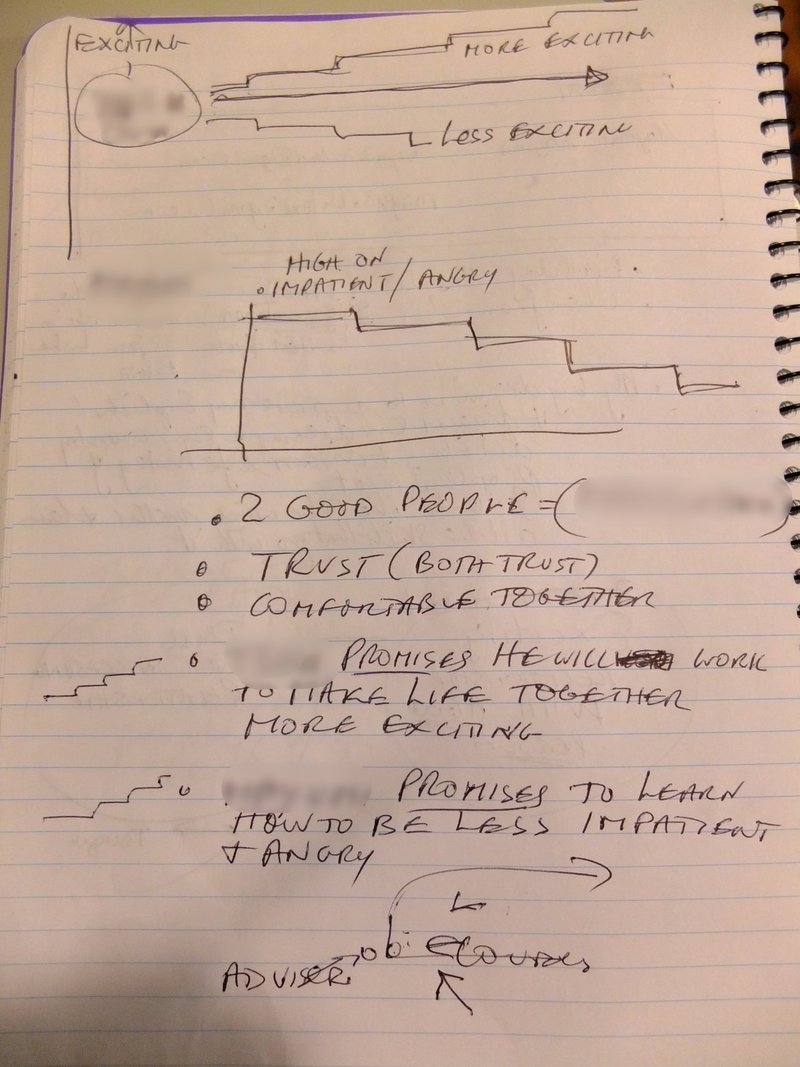 EXCITING
MORE EXCITING
LESS EXCITING
HIGH ON
. IMPATIENT / ANGRY
. 2 GOOD PEOPLE = ( )
TRUST (BOTH TRUST)
COMFORTABLE TOGETHER
PROMISES HE WILL WORK
TO MAKE LIFE TOGETHER
MORE EXCITING
PROMISES TO LEARN
HOW TO BE LESS IMPATIENT
+ ANGRY
L
ADVISER